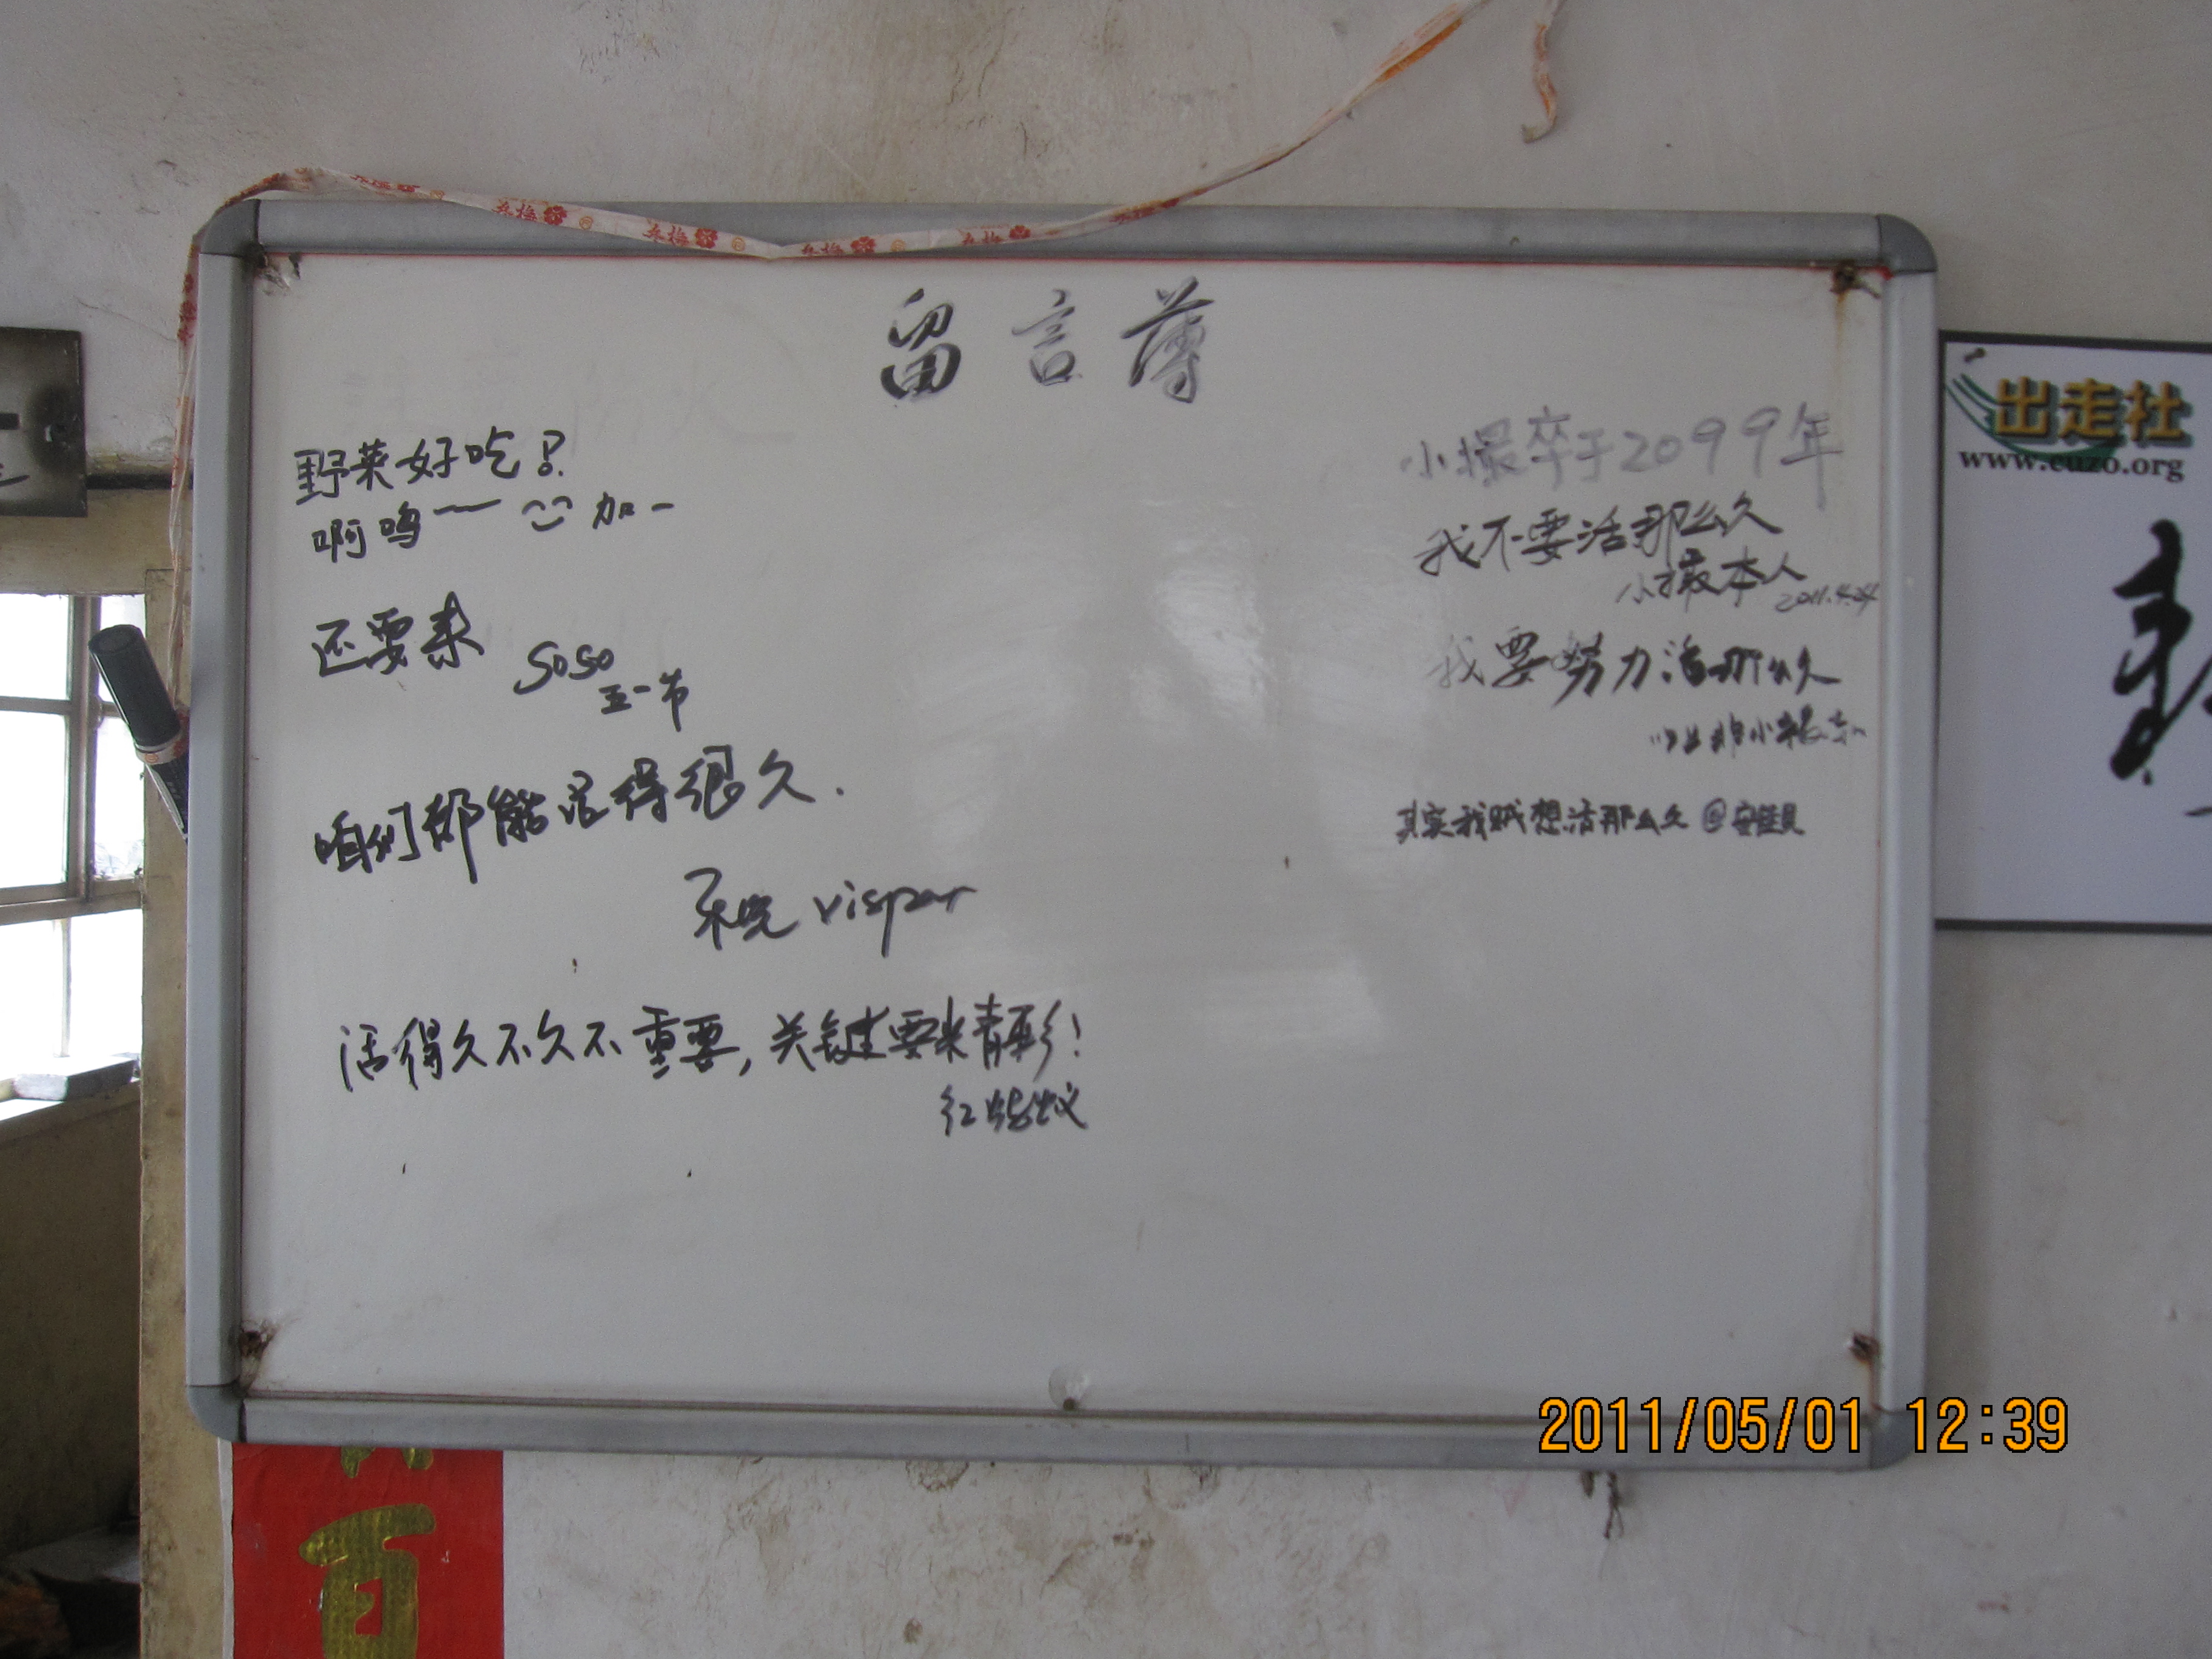 留言薄
野菜好吃?
啊呜~~ 加一
还要来
soso
五一节
咱们都能活得很久.
vispar
活得久不久不重要,关键要来精彩!
红蚂蚁
小撮卒于2099年
我不要活那么久
小撮本人
2011.4.24
我要努力活那么久
以上非小撮
其实我贼想活那么久@安佳贝
出走社
www.cuzo.org
百
2011/05/01 12:39